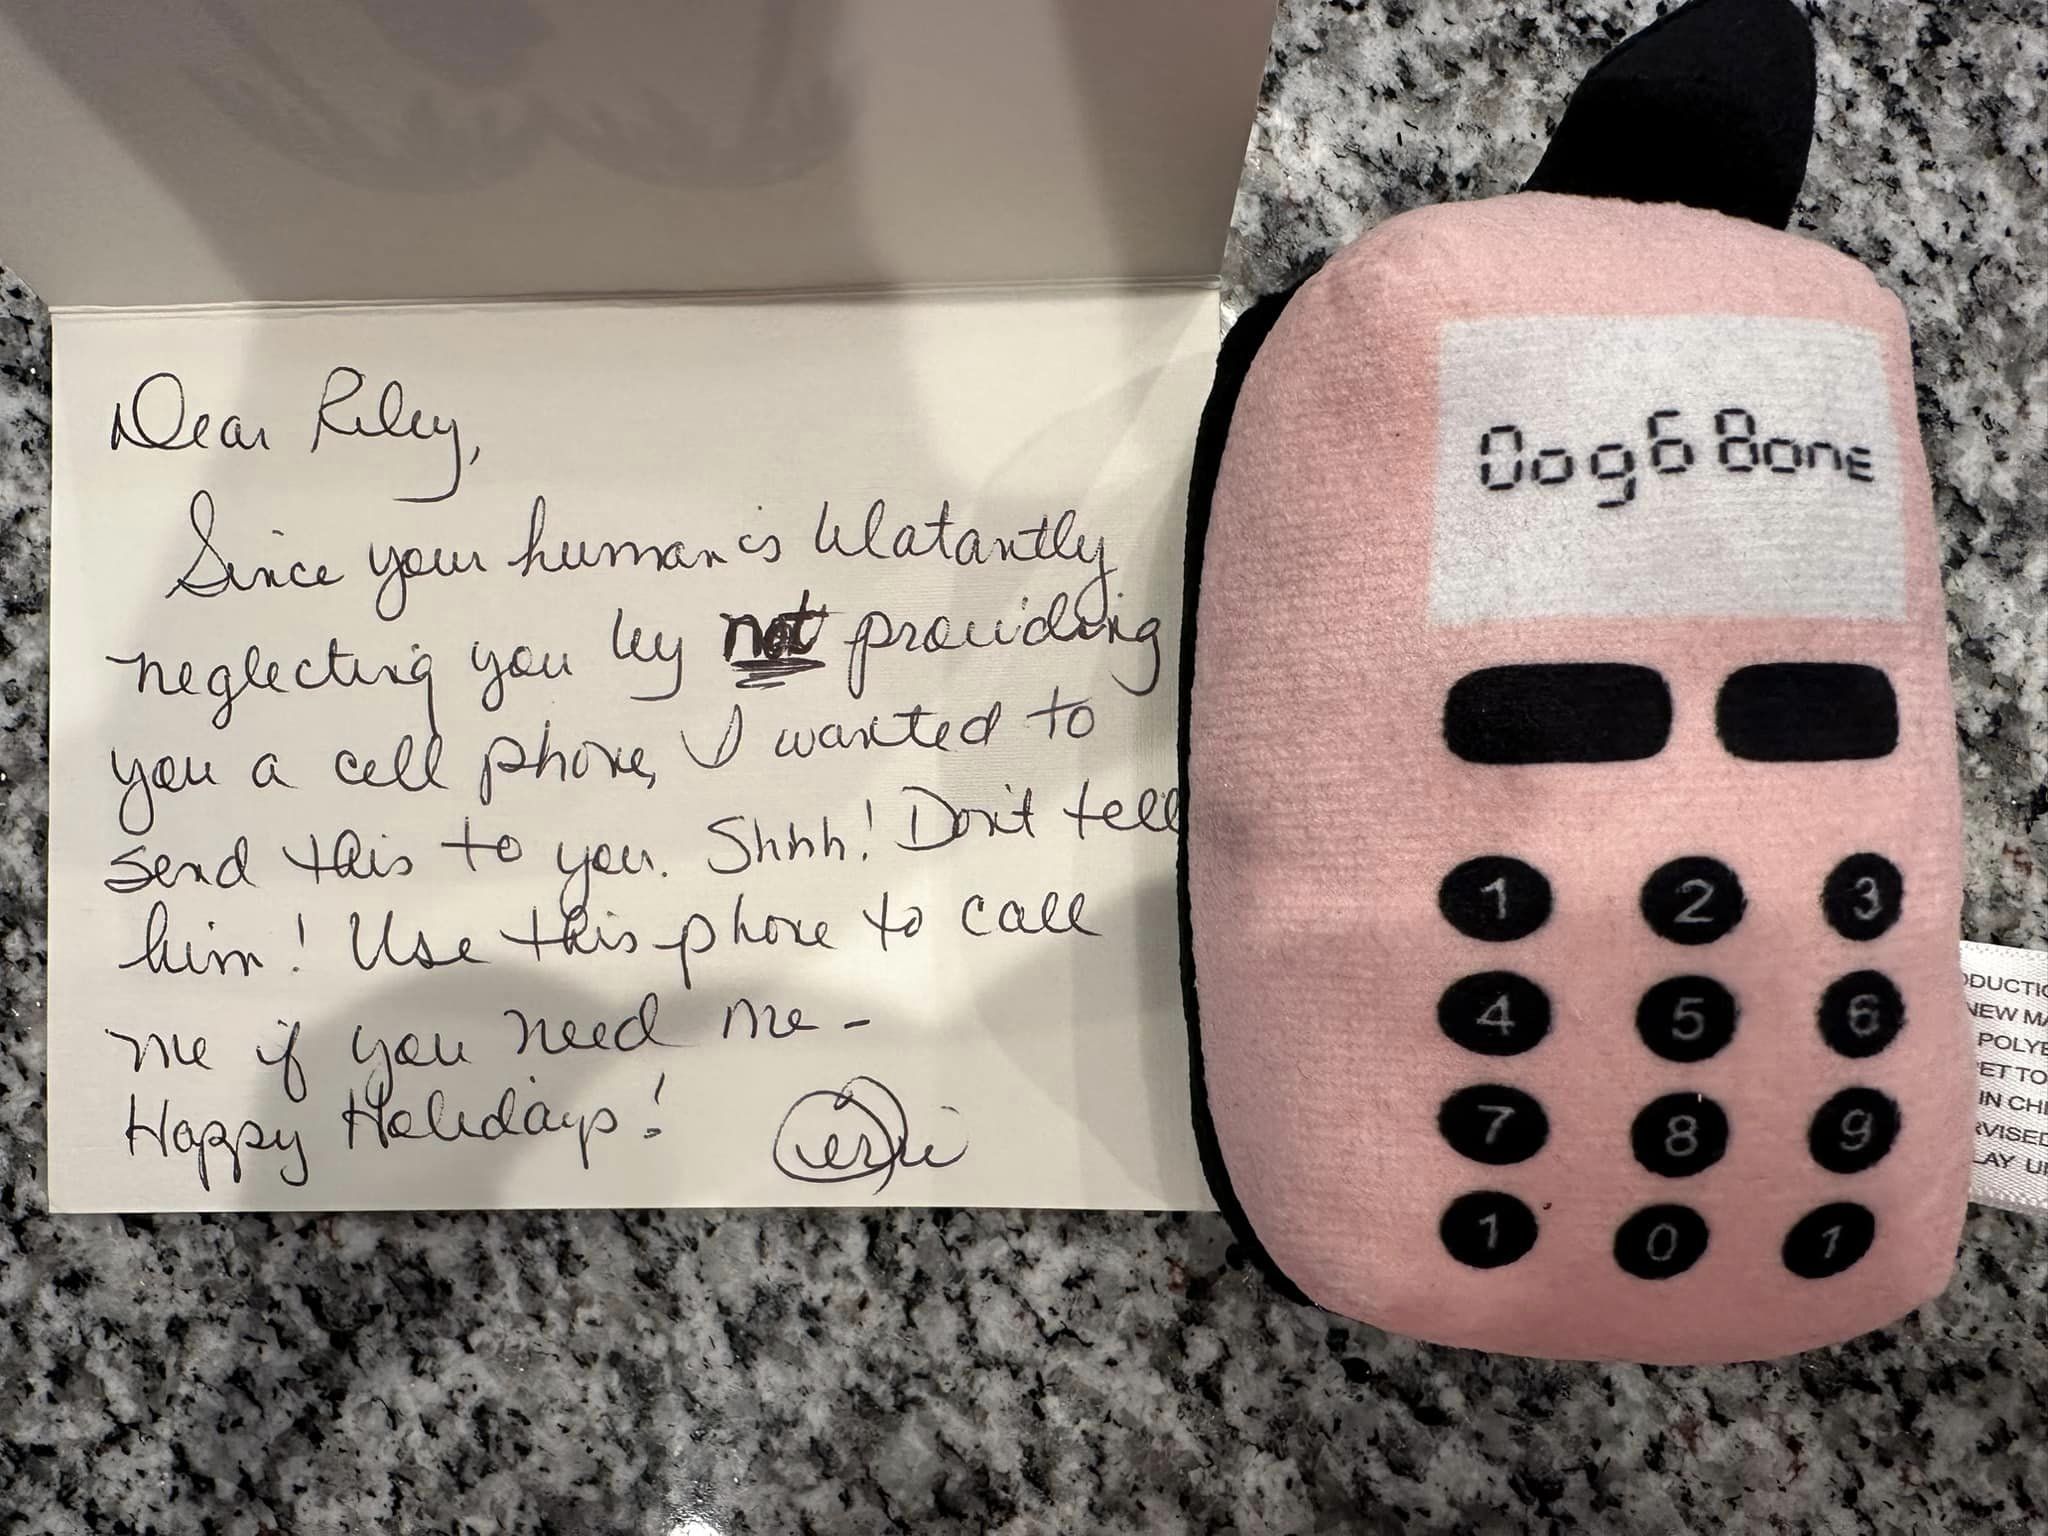 Dear Riley,
Since your human is blatantly
neglecting you by not providing
you a cell phone, I wanted to
send this to you. Shhh! Don't tell
him! Use this phone to call
me if you need me -
Happy Holidays!
Dog6 Bone
1 2 3
4 5 6
7 8 9
1 0 1
NEW
POLYE
PET TO
IN CHI
RVISED
LAY